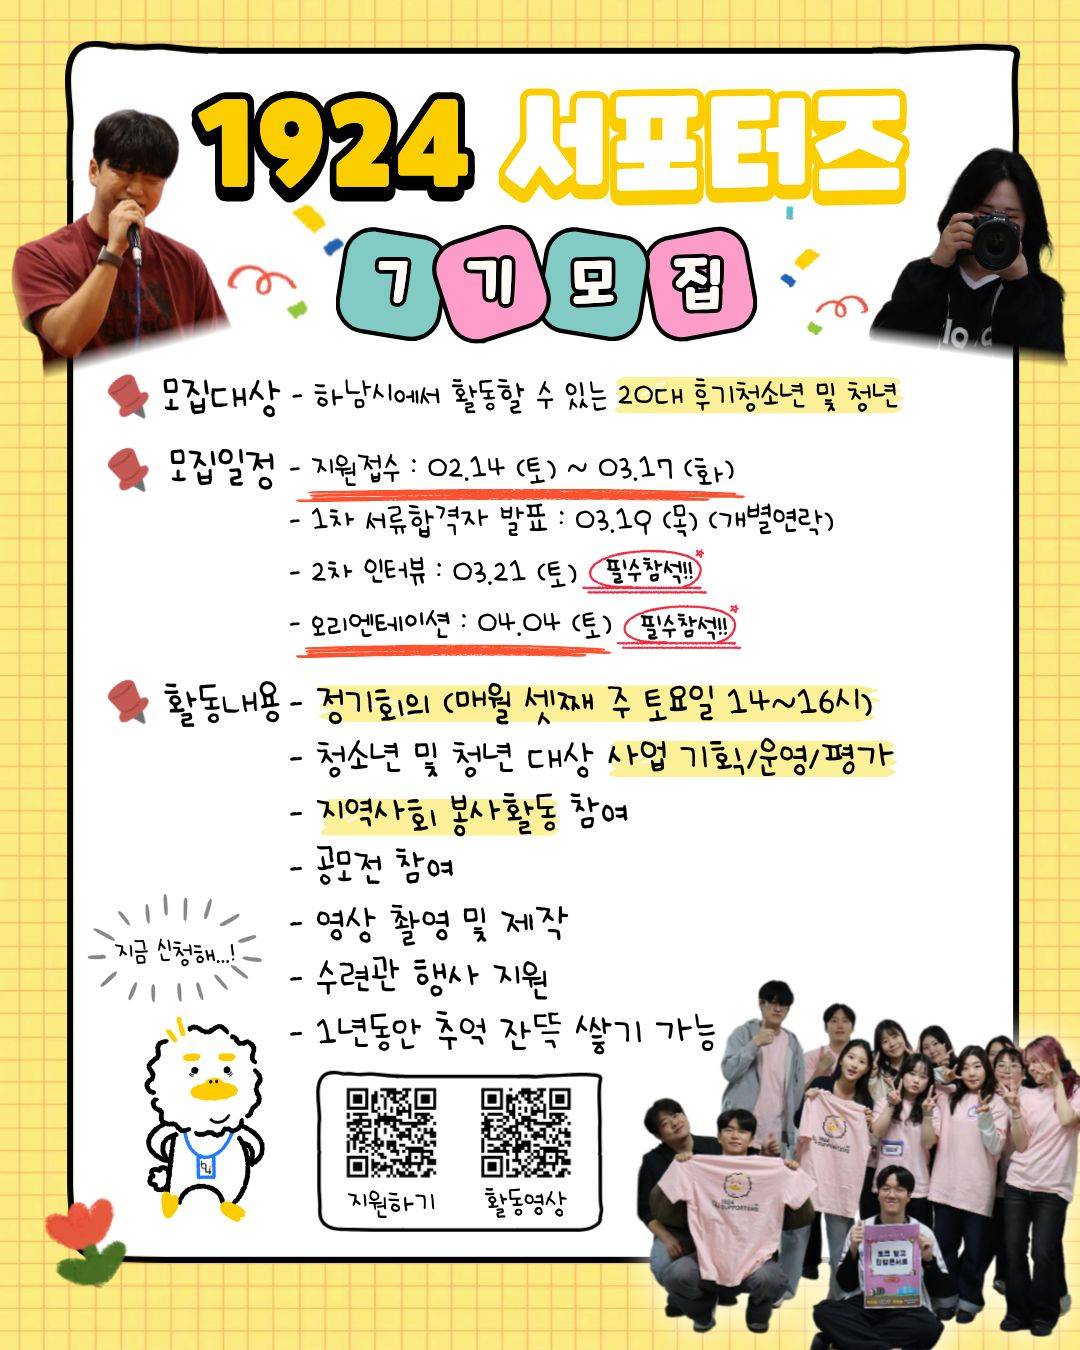 1924 서포터즈
7기모집
모집대상 - 하남시에서 활동할 수 있는 20대 후기청소년 및 청년
모집일정 - 지원접수 : 02.14 (토) ~ 03.17 (화)
- 1차 서류합격자 발표 : 03.19 (목) (개별연락)
- 2차 인터뷰 : 03.21 (토) 필수참석!!
- 오리엔테이션 : 04.04 (토) 필수참석!!
활동내용 - 정기회의 (매월 셋째 주 토요일 14~16시)
- 청소년 및 청년 대상 사업 기획/운영/평가
- 지역사회 봉사활동 참여
- 공모전 참여
- 영상 촬영 및 제작
- 수련관 행사 지원
- 1년동안 추억 잔뜩 쌓기 가능
지금 신청해...!
지원하기
활동영상
1924
SUPPORTERS